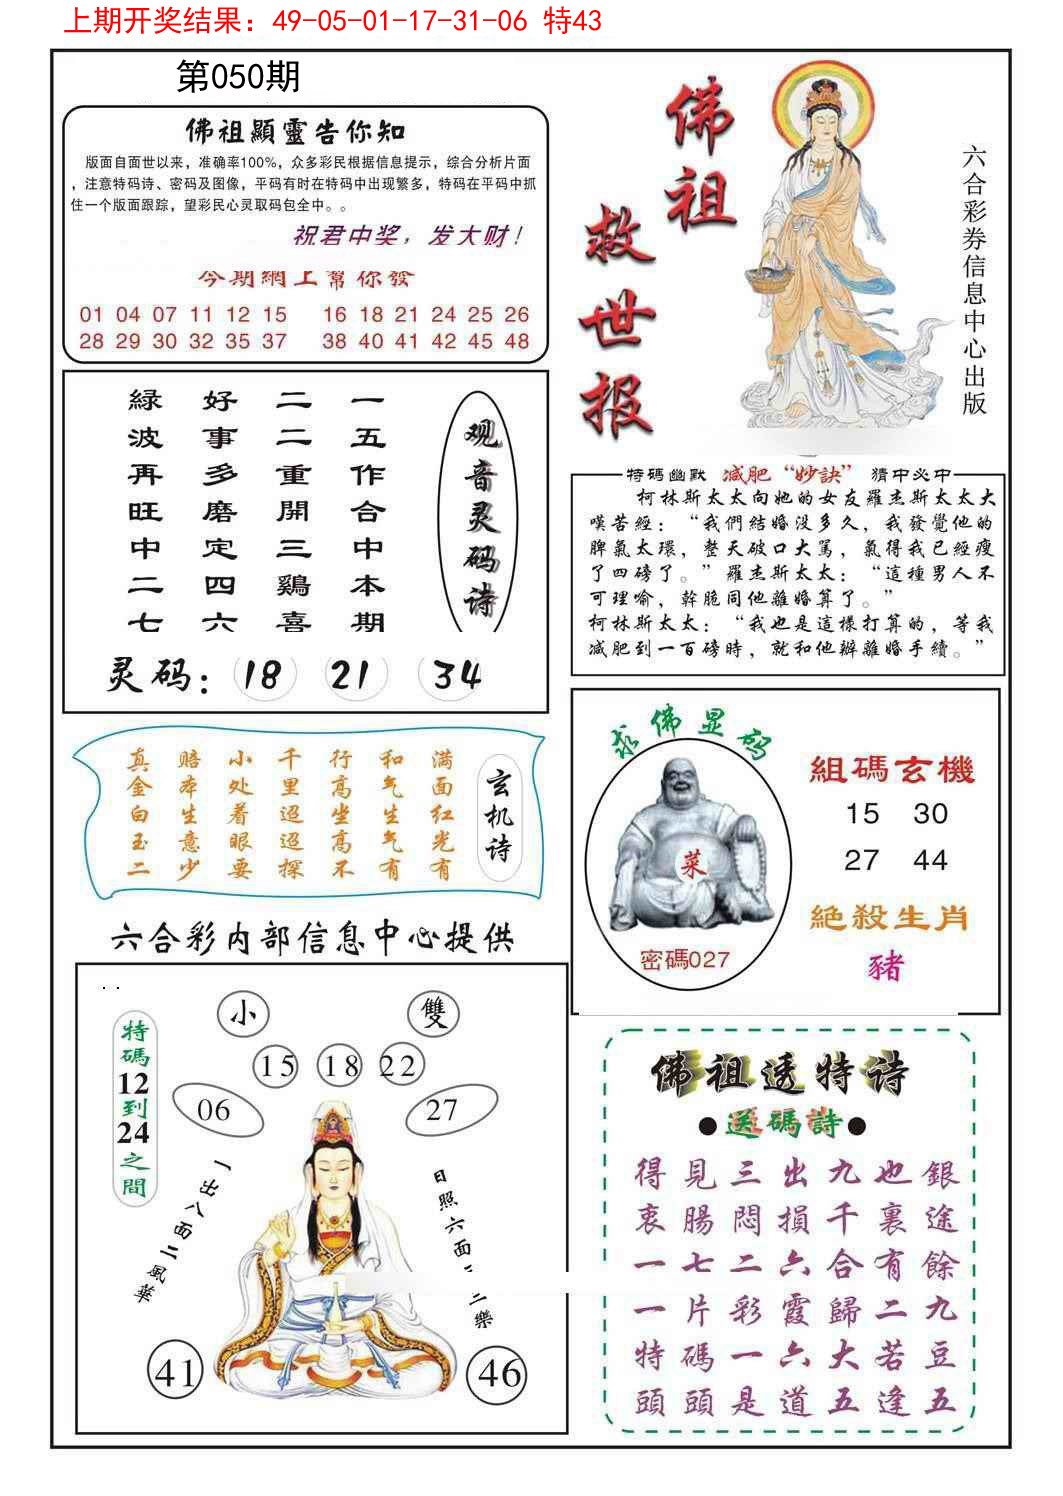 上期开奖结果：49-05-01-17-31-06 特43
第050期
佛祖顯靈告你知
版面自面世以来，准确率100%，众多彩民根据信息提示，综合分析片面
，注意特码诗、密码及图像，平码有时在特码中出现繁多，特码在平码中抓
住一个版面跟踪，望彩民心灵取码包全中。。
祝君中奖，发大财！
今期網上幫你發
01 04 07 11 12 15 16 18 21 24 25 26
28 29 30 32 35 37 38 40 41 42 45 48
佛祖
救世报
六合彩券信息中心出版
观音灵码诗
一五作合中本期
二二重開三鷄喜
好事多磨定四六
緑波再旺中二七
灵码：18 21 34
特碼幽默 减肥“妙訣” 猜中必中
柯林斯太太向她的女友羅杰斯太太大
嘆苦經：“我們結婚没多久，我發覺他的
脾氣太環，整天破口大駡，氣得我已經瘦
了四磅了。”羅杰斯太太：“這種男人不
可理喻，幹脆同他離婚算了。”
柯林斯太太：“我也是這樣打算的，等我
减肥到一百磅時，就和他辦離婚手續。”
玄机诗
满面红光有
和气生气有
行高坐高不
千里迢迢探
小处着眼要
赔本生意少
真金白玉二
求佛显码
菜
密碼027
組碼玄機
15 30
27 44
絕殺生肖
豬
六合彩内部信息中心提供
特碼12到24之間
小 雙
15 18 22
06 27
一出八面二風華
日照六面二三樂
41 46
佛祖透特诗
●送碼詩●
得見三出九也銀
衷腸悶損千裏途
一七二六合有餘
一片彩霞歸二九
特碼一六大若豆
頭頭是道五逢五